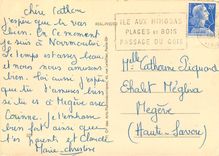 Chère Cathou
J'espère que tu vas
bien. En ce moment
je suis à Noirmoutier.
Le temps est assez beau
et nous nous amusons
bien. J'espère
que tu t'amuses bien
toi à Megève avec
Corinne. Je t'embrasse
bien fort ainsi que
et Claude
Marie-christine
ILE AUX MIMOSAS
PLAGES et BOIS
PASSAGE DU GOIS
Melle Catherine
Chalet
Megève
(Haute-Savoie)